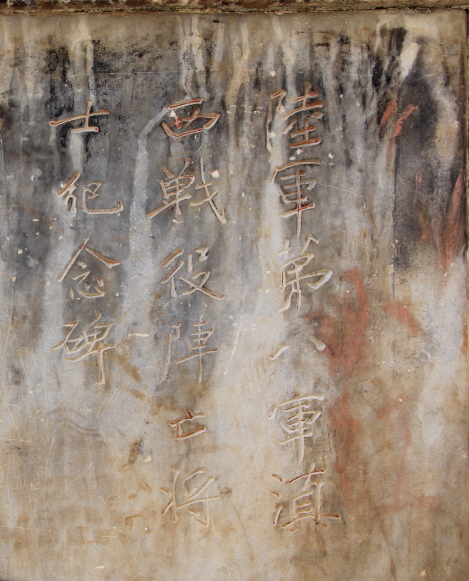 陸軍第八軍滇
西戰役陣亡将
士紀念碑